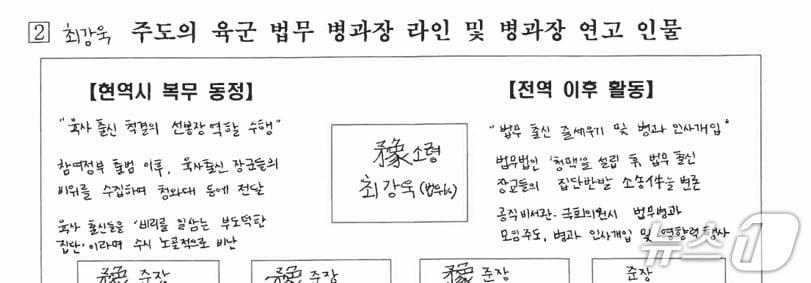 2 최강욱 주도의 육군 법무 병과장 라인 및 병과장 연고 인물
【현역시 복무 동정】
"육사 출신 척결의 선봉장 역할 수행"
참여정부 출범 이후, 육사출신 장군들의
비위를 수집하며 청와대 등에 전달
육사 출신들을 '비리를 일삼는 부도덕한
집단'이라며 수시 노골적으로 비난
豫소령
최강욱(법무)
【전역 이후 활동】
"법무 출신 줄세우기 및 병과 인사개입"
법무법인 '청맥'을 설립 後 법무 출신
장교들의 집단반발 소송件을 변론
공직비서관·국회의원시 법무병과
모임주도, 병과 인사개입 및 영향력 행사
豫 준장
豫 준장
豫 준장
준장
뉴스1